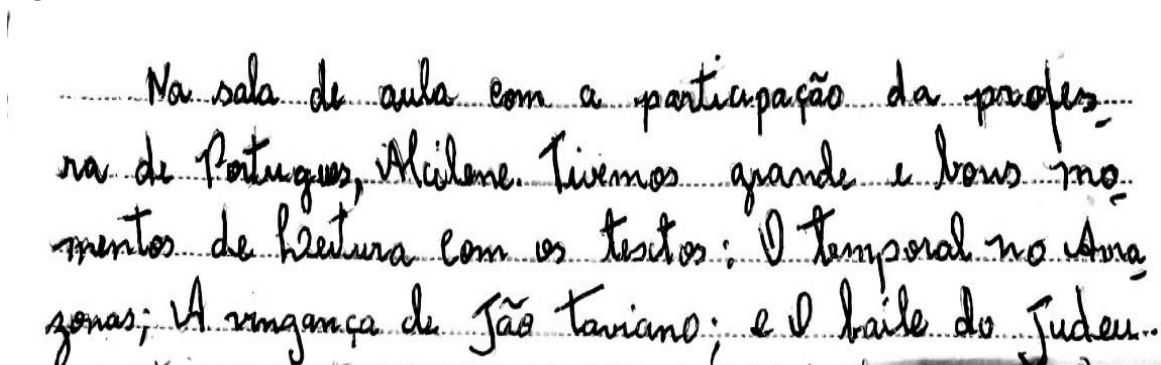 Na sala de aula com a participação da profes_
ra de Portugues, Alcilene. Tivemos grande e bons mo_
mentos de Leitura com os textos: O temporal no Ama_
zonas; A vingança de Jão Taviano; e O baile do Judeu.